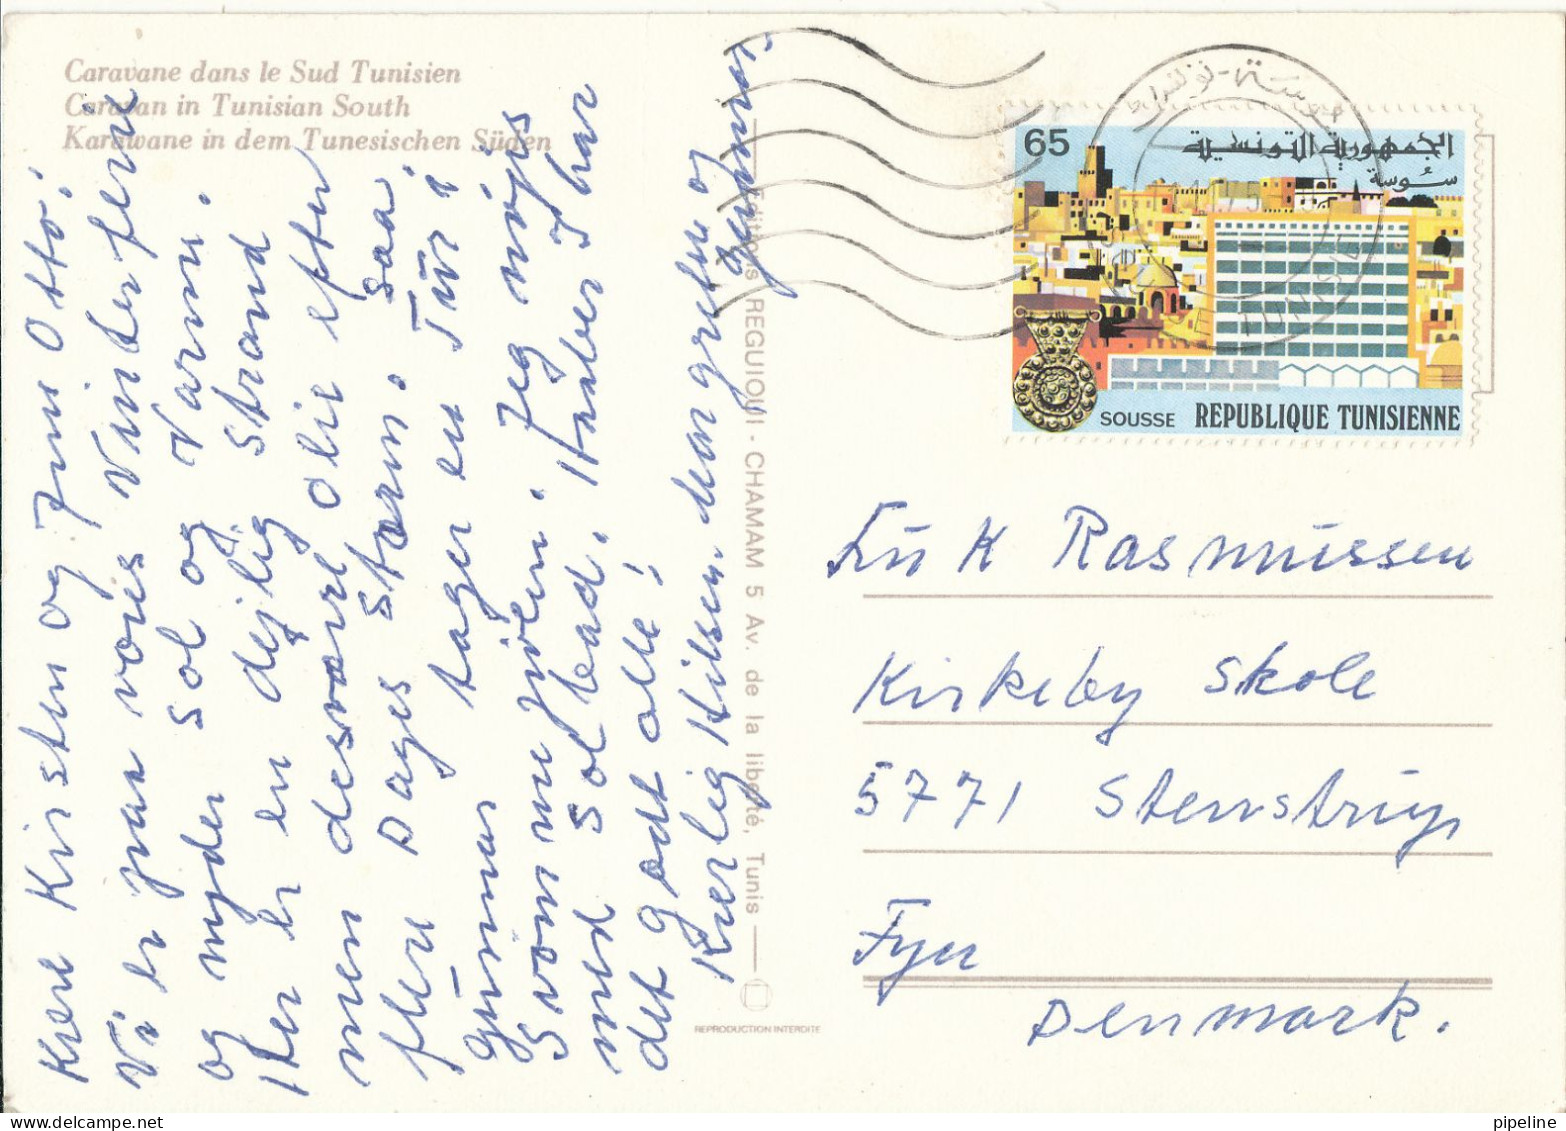 Caravane dans le Sud Tunisien
Caravan in Tunisian South
Karawane in dem Tunesischen Süden
Kære Kirsten og Jørn Otto!
Vi er paa vores Vinterferie
og nyder Sol og Varm.
Her er en dejlig Strand
men desværre olie efter
flere Dages Storm. Saa
Gunnar tager en Tur i
Svømmepølen. Jeg nøjes
med Solbad. Haaber I har
det godt alle!
Kærlig Hilsen. Mor grethe og
Gunnar.
Editions REGUIOUI - CHAMAM 5 Av. de la liberté, Tunis
REPRODUCTION INTERDITE
65
الجمهورية التونسية
سوسة
SOUSSE REPUBLIQUE TUNISIENNE
TUNISIE
K Rasmussen
Kirkeby Skole
5771 Stenstrup
Fyn
Denmark.
pipeline